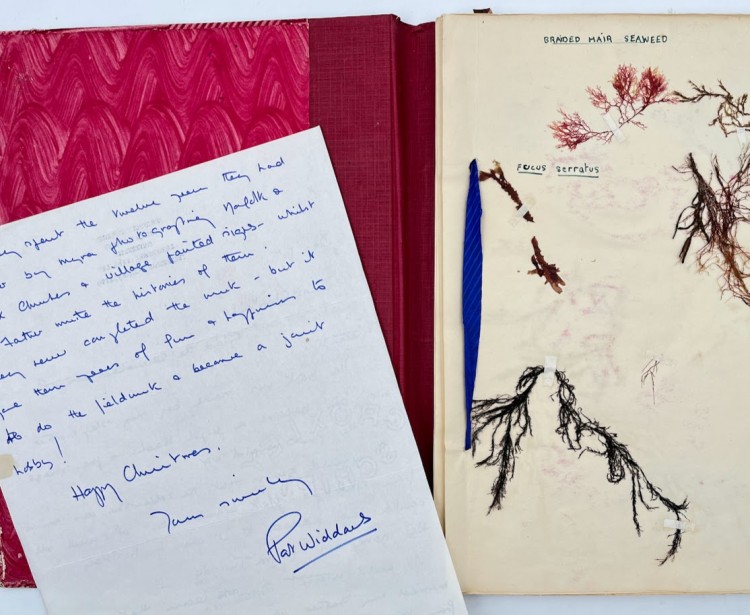 spent the twelve years they had
by photographing Norfolk &
Churches & village painted signs - whilst
Father wrote the histories of them.
never completed the work - but it
them years of fun & happiness to
to do the fieldwork & became a joint
hobby!
Happy Christmas.
Yours sincerely
Pat Widdaus
BRAIDED HAIR SEAWEED
FUCUS serratus